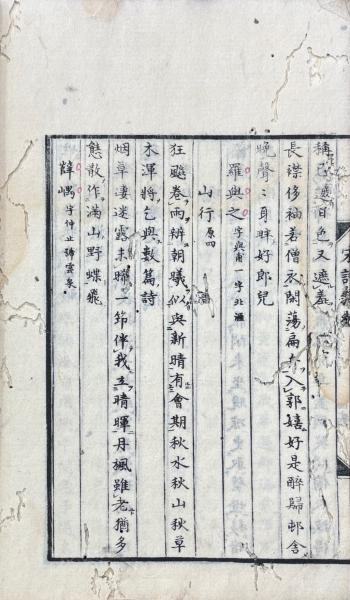 稱已遮日色又遮羞
長襟侈袖若僧衣闊蕩扁舟入郭嬉好是醉歸邨舍
晚聲〻身畔好郎兒
羅與之 字與甫一字北涯
山行 原四
狂飈卷雨辨朝曦似與新晴有會期秋水秋山秋草
木渾將乞與數篇詩
烟草凄迷露未晞一筇伴我立晴暉丹楓雖老猶多
態散作滿山野蝶飛
薛嵎 字仲止號雲泉